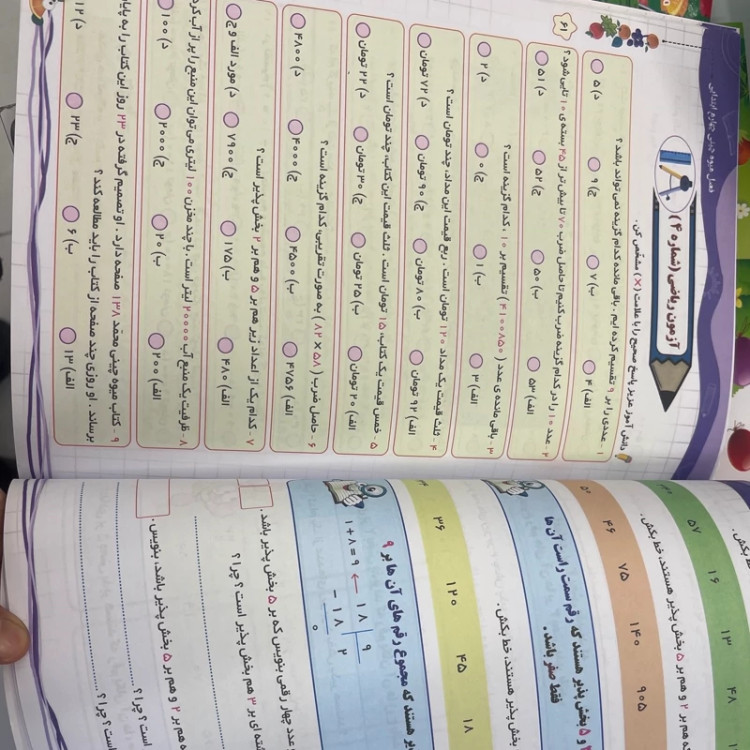 فصل میوه چینی چهارم ابتدایی
آزمون ریاضی (شماره ۴)
دانش آموز عزیز پاسخ صحیح را با علامت (×) مشخص کن.
۱ - عددی را بر ۹ تقسیم کرده ایم. باقی مانده کدام گزینه نمی تواند باشد ؟
الف) ۴ ب) ۷ ج) ۹ د) ۵
۲ - عدد ۱۰ را در کدام گزینه ضرب کنیم تا حاصل ضرب ۷۰ تا بیش تر از ۴۵ بسته ی ۱۰ تایی شود ؟
الف) ۵۳ ب) ۵۰ ج) ۵۲ د) ۵۱
۳ - باقی مانده ی عدد ( ۴۱۰۰۸۵۰ ) تقسیم بر ۱۰، کدام گزینه است ؟
الف) ۳ ب) ۱ ج) ۰ د) ۲
۴ - ثلث قیمت یک مداد ۱۲۰ تومان است. ربع قیمت این مداد، چند تومان است ؟
الف) ۹۲ تومان ب) ۸۰ تومان ج) ۹۰ تومان د) ۷۲ تومان
۵ - خمس قیمت یک کتاب، ۱۵ تومان است. ثلث قیمت این کتاب، چند تومان است ؟
الف) ۲۰ تومان ب) ۲۵ تومان ج) ۳۰ تومان د) ۲۲ تومان
۶ - حاصل ضرب ( ۵۸ × ۸۲ ) به صورت تقریبی، کدام گزینه است ؟
الف) ۴۷۵۶ ب) ۴۵۰۰ ج) ۴۰۰۰ د) ۴۸۰۰
۷ - کدام یک از اعداد زیر هم بر ۵ و هم بر ۲ بخش پذیر است ؟
الف) ۴۸۰ ب) ۱۷۵ ج) ۷۹۰۰ د) مورد الف و ج
۸ - ظرفیت یک منبع آب ۲۰۰۰۰ لیتر است. با چند مخزن ۱۰۰ لیتری می توان این منبع را پر از آب کرد
الف) ۲۰۰ ب) ۲۰ ج) ۲۰۰۰ د) ۱۰۰
۹ - کتاب میوه چینی محمد ۱۳۸ صفحه دارد. او تصمیم گرفته در ۲۳ روز این کتاب را به پایان
برساند. او روزی چند صفحه از کتاب را باید مطالعه کند ؟
الف) ۱۳ ب) ۶ ج) ۲۳ د) ۱۲
۶۱
خط بکش.
۵۷ ۱۶ ۱۳ ۴۸
هم بر ۲ و هم بر ۵ بخش پذیر هستند، خط بکش.
۴۶ ۷۵ ۱۴۰ ۹۰۵
و ۵ بخش پذیر هستند که رقم سمت راست آن ها
فقط صفر باشد.
بخش پذیر هستند، خط بکش.
۳۶ ۱۲۰ ۴۵ ۱۸
هستند که مجموع رقم های آن ها بر ۹
۱+۸=۹ ← ۱۸ ۹
- ۱۸ ۲
۰
عدد چهار رقمی بنویس که بر ۵ بخش پذیر باشد.
بر ۳ هم بخش پذیر است ؟ چرا ؟
هم بر ۲ و هم بر ۵ بخش پذیر باشد، بنویس.
است ؟ چرا ؟
است ؟ چرا ؟